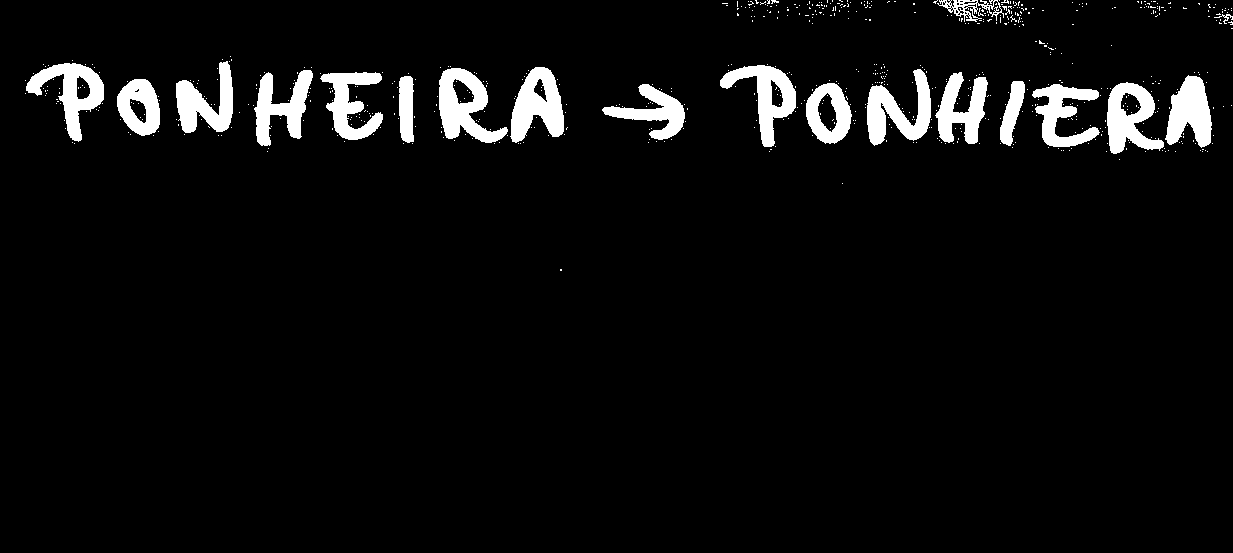 PONHEIRA → PONHIERA